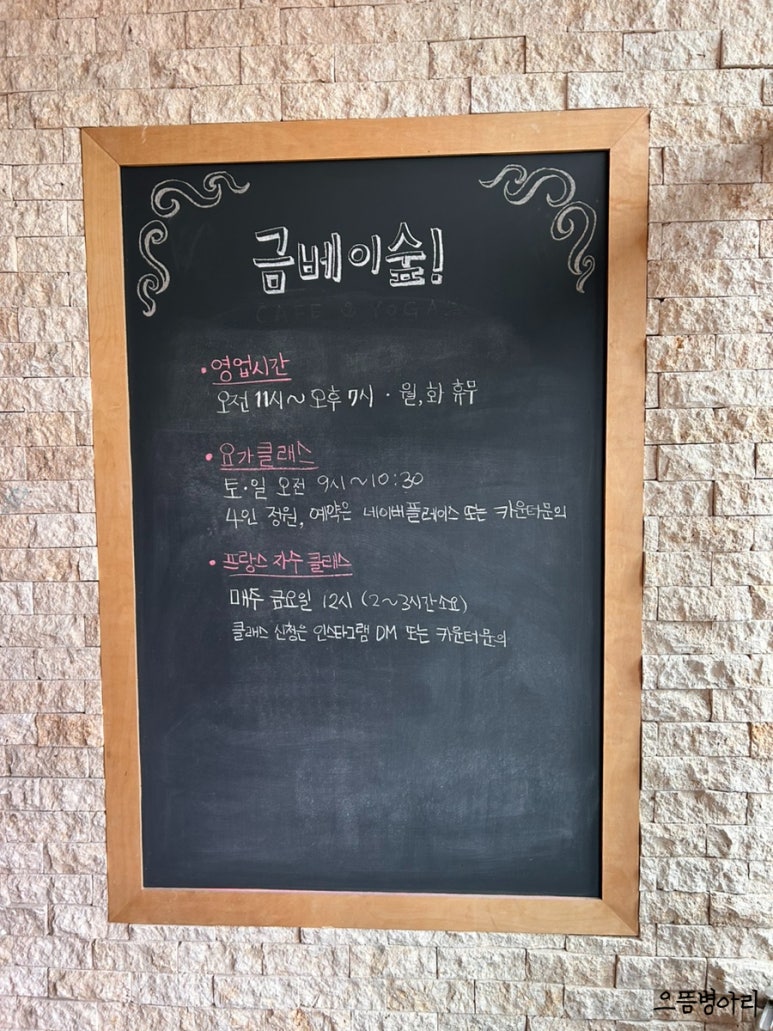 금베이숲!
CAFE & YOGA
• 영업시간
오전 11시~오후 7시 · 월, 화 휴무
• 요가클래스
토·일 오전 9시~10:30
4인 정원, 예약은 네이버플레이스 또는 카운터문의
• 프랑스 자수 클래스
매주 금요일 12시 (2~3시간소요)
클래스 신청은 인스타그램 DM 또는 카운터문의
으뜸병아리